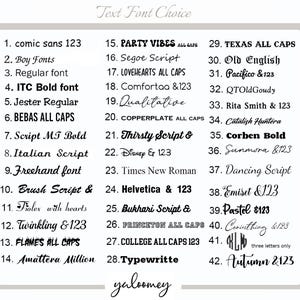 Text Font Choice
1. comic sans 123
2. Boy Fonts
3. Regular font
4. ITC Bold font
5. Jester Regular
6. BEBAS ALL CAPS
7. Script MT Bold
8. Italian Script
9. Freehand font
10. Brush Script &
11. Boler with hearts
12. Twinkling &123
13. FLAMES ALL CAPS
14. Amattera Million
15. PARTY VIBES ALL CAPS
16. Segoe Script
17. LOVEHEARTS ALL CAPS
18. Comfortaa &123
19. Qualitative
20. COPPERPLATE ALL CAPS
21. Thirsty Script &
22. Disney & 123
23. Times New Roman
24. Helvetica & 123
25. Bukhari Script &
26. PRINCETON ALL CAPS
27. COLLEGE ALL CAPS 123
28. Typewritte
29. TEXAS ALL CAPS
30. Old English
31. Pacifico &123
32. QTOldGoudy
33. Rita Smith & 123
34. Catalish Huntera
35. Corben Bold
36. Sunmora &123
37. Dancing Script
38. Emisel &123
39. Pastel &123
40. Corinthing &123
41. three letters only
42. Autumn &123
yaloomey